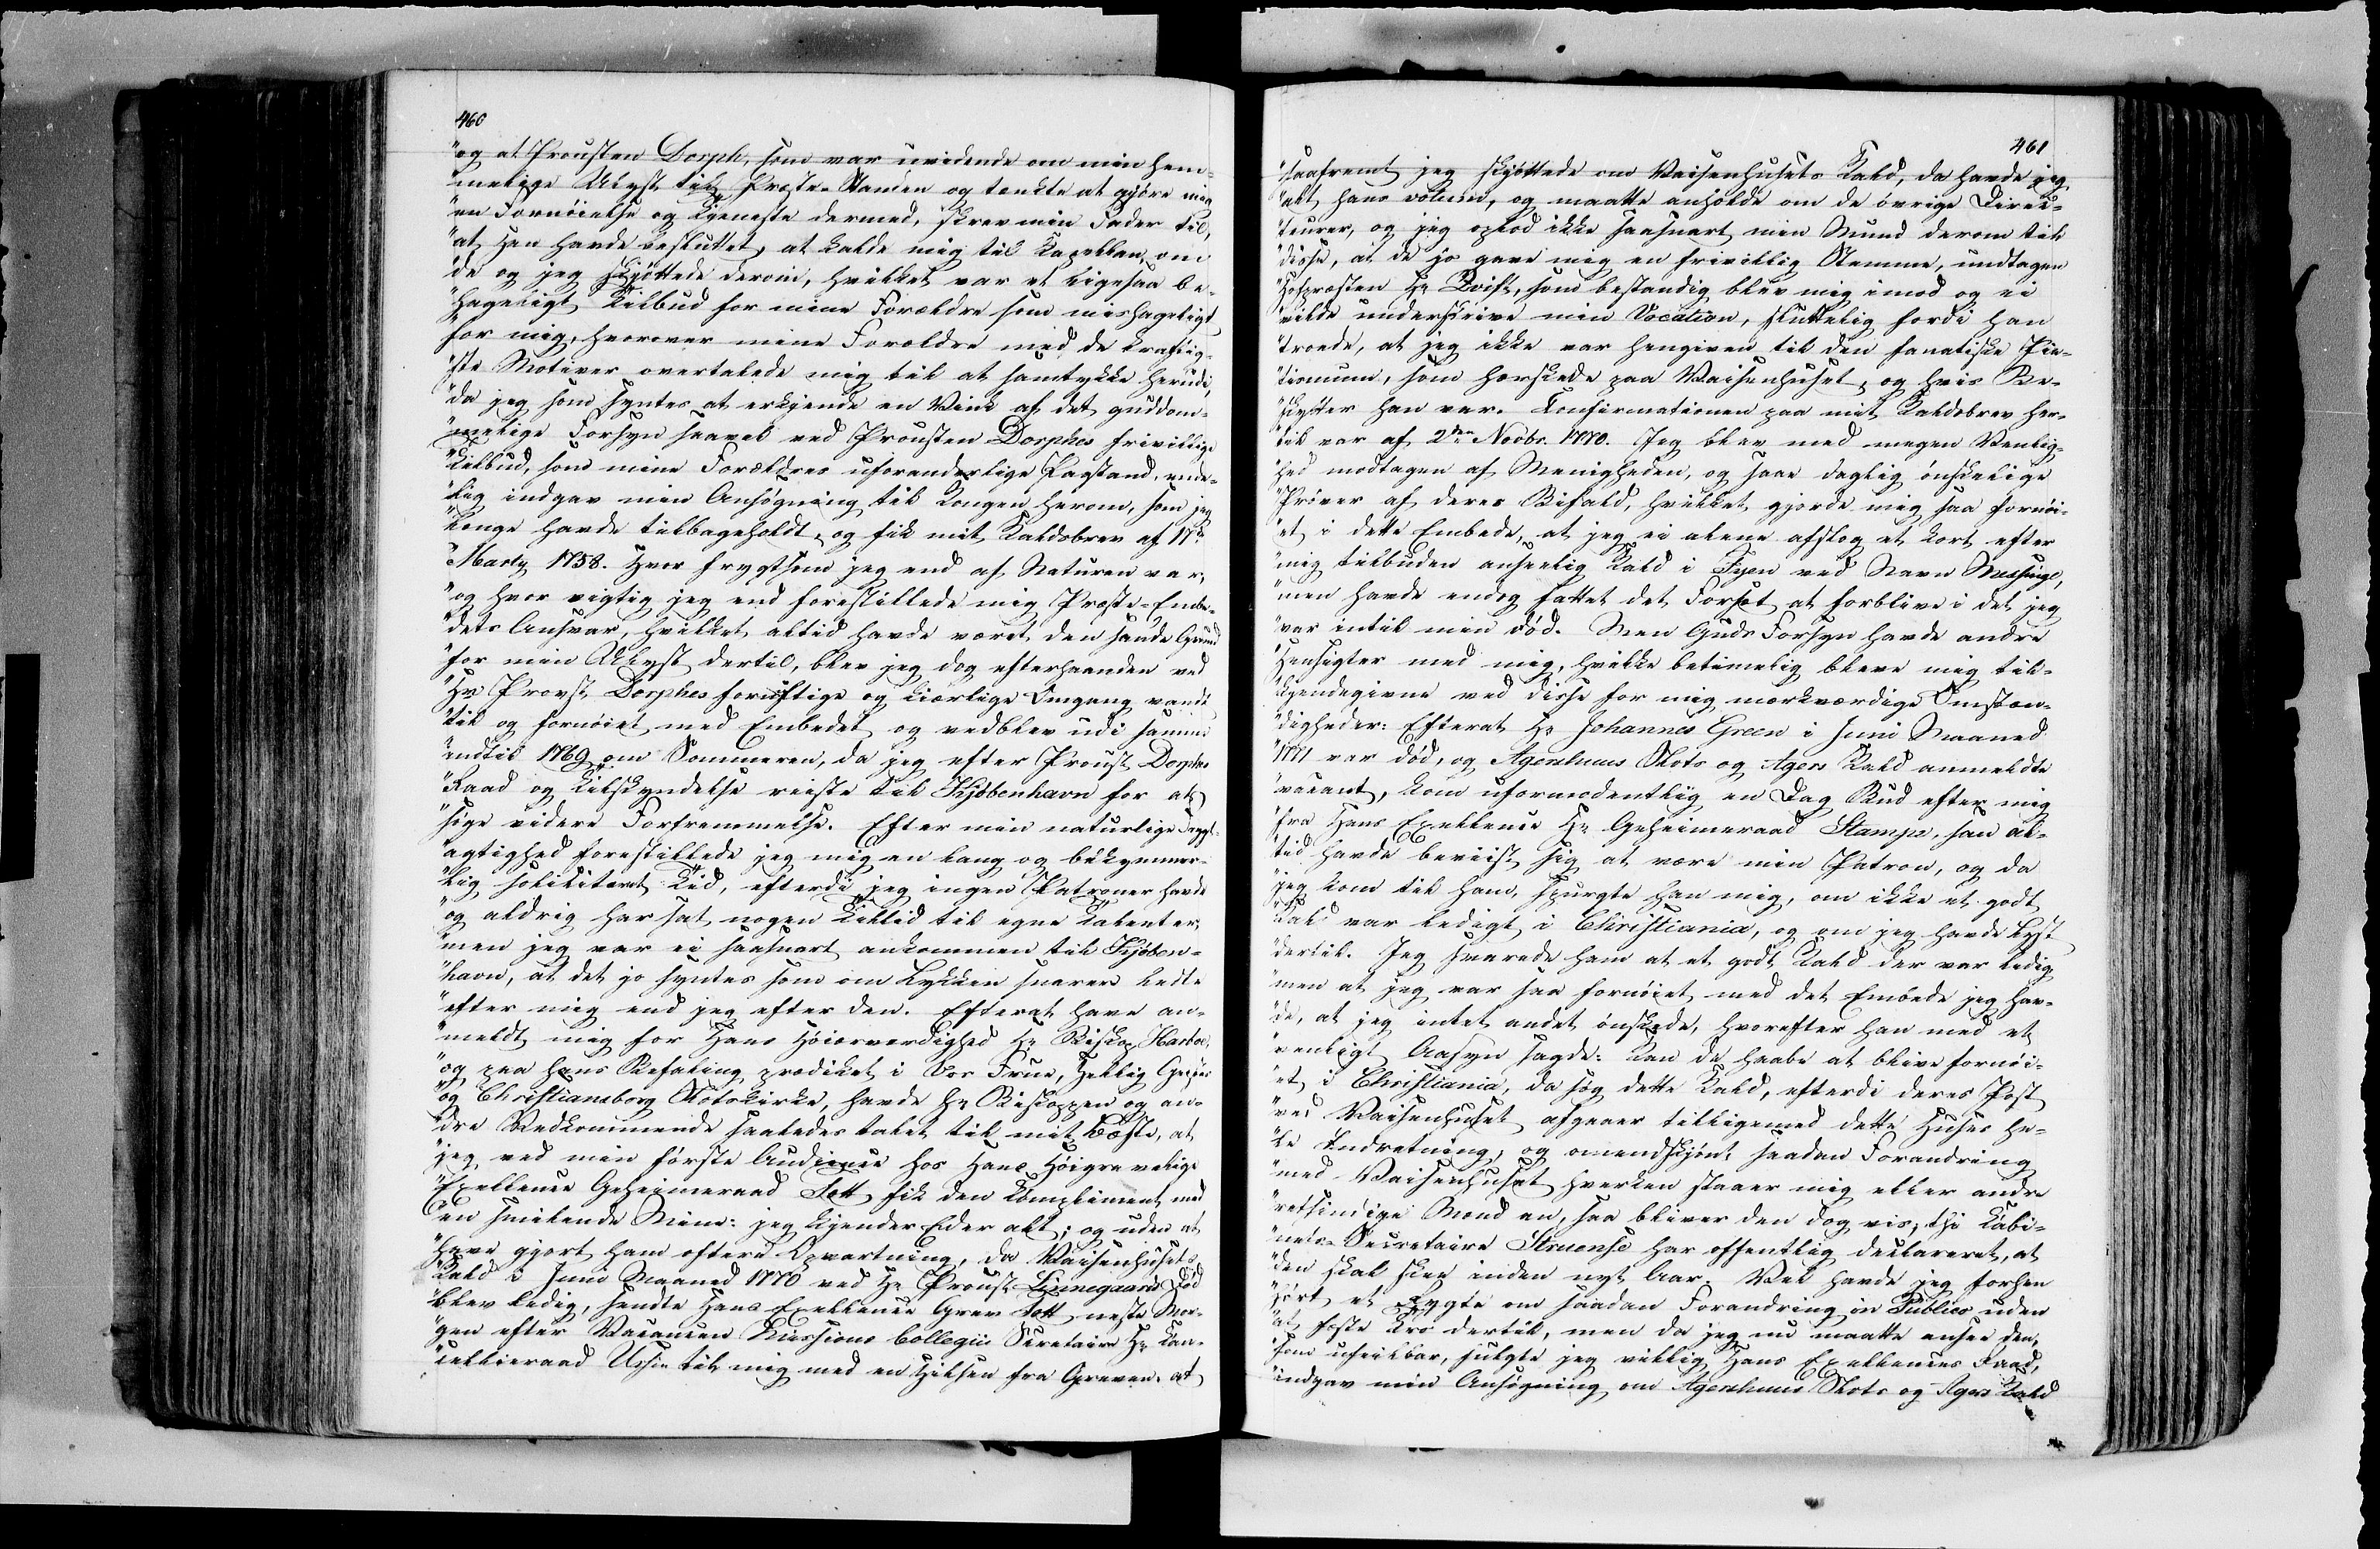 460
"og at Provsten Dorph, som var uvidende om min hem-
"melige Ulyst til Præste-Standen og tænkte at gjöre mig
"en Fornöielse og Tjeneste dermed, skrev min Fader til,
"at han havde besluttet, at kalde mig til Kapellan, om
"de og jeg skjöttede derom, hvilket var et ligesaa be-
"hageligt Tilbud for mine Forældre som mishageligt
"for mig, hvorover mine Forældre med de kraftig-
"ste Motiver overtalede mig til at samtykke herudi,
"da jeg som syntes at erkjende en Vink af det guddom-
"melige Forsyn saavel ved Provsten Dorphes frivillige
"Tilbud, som mine Forældres uforanderlige Paastand, ende-
"lig indgav min Ansögning til Kongen herom, som jeg
"længe havde tilbageholdt, og fik mit Kaldsbrev af 17de
"Marty 1758. Hvor frygtsom jeg end af Naturen var,
"og hvor vigtig jeg end forestillede mig Præste-Embe-
"dets Ansvar, hvilket altid havde været den sande Grund
"for min Ulyst dertil, blev jeg dog efterhaanden ved
"Hr Provst Dorphes fornuftige og kiærlige Omgang vandt
"til og fornöiet med Embedet og vedblev udi samme
"indtil 1769 om Sommeren, da jeg efter Provst Dorphes
"Raad og Tilskyndelse reiste til Kjöbenhavn for at
"söge videre Forfremmelse. Efter min naturlige Frygt-
"agtighed forestillede jeg mig en lang og bekymmer-
"lig soliciterer Tid, efterdi jeg ingen Patroner havde
"og aldrig har sat nogen Tillid til egne Talenter,
"men jeg var ei saasnart ankommen til Kjöben-
"havn, at det jo syntes som om Lykken snarere ledte
"efter mig end jeg efter den. Efterat have an-
"meldt mig for Hans Höiærværdighed Hr Biskop Harboe,
"og paa hans Befaling prædiket i Vor Frue, Hellig Gejstes
"og Christiansborg Slotskirke, havde Hr Biskoppen og an-
"dre Vedkommende saaledes talet til mit Bedste, at
"jeg ved min förste Audience hos Hans Höigrevelige
"Exellence Geheimeraad Tott fik den Compliment med
"en smilende Mine: jeg kjender Eder alt; og uden at
"have gjort ham oftere Opvartning, da Vaisenhusets
"Kald i Juni Maaned 1770 ved Hr Provst Linnegaards Död
"blev ledig, sendte Hans Exellence Grev Tott neste Mor-
"gen efter Vacancen Missions Collegii Secretaire Hr Can-
"cellieraad Ussin til mig med en Hilsen fra Greven, at
461
"saafremt jeg skjöttede om Vaisenhusets Kald, da havde jeg
"alt hans votum, og maatte anholde om de övrige Direc-
"teurer, og jeg oplod ikke saasnart min Mund derom til
"disse, at de jo gave mig en frivillig Stemme, undtagen
"Hofpræsten Hr Qvist, som bestandig blev mig imod og ei
"vilde underskrive min Vocation, sluttelig fordi han
"troede, at jeg ikke var hengiven til den fanatiske Pie-
"tismum, som herskede paa Vaisenhuset, og hvis Be-
"skytter han var. Confirmationen paa mit Kaldsbrev her-
"til var af 2den Novbr. 1770. Jeg blev med megen Venlig-
"hed modtagen af Menigheden, og saae daglig önskelige
"Pröver af deres Bifald, hvilket gjorde mig saa fornöi-
"et i dette Embede, at jeg ei alene afslog et kort efter
"mig tilbuden anseelig Kald i Fyen ved Navn Messinge,
"men havde endog fattet det Forsæt at forblive i det jeg
"var intil min död. Men Guds Forsyn havde andre
"Hensigter med mig, hvilke betimelig bleve mig til-
"kjendegivne ved disse for mig mærkværdige Omstæn-
"digheder: Efterat Hr Johannes Green i Juni Maaned
"1771 var död, og Agershuus Slots og Agers Kald anmeldte
"vacant, kom uformodentlig en Dag Bud efter mig
"fra Hans Exellence Hr Geheimeraad Stampe, han al-
"tid havde beviist sig at være min Patron, og da
"jeg kom til ham, spurgte han mig, om ikke et godt
"Kald var ledigt i Christiania, og om jeg havde Lyst
"dertil. Jeg svarede ham at et godt Kald der var ledig
"men at jeg var saa fornöiet med det Embede jeg hav-
"de, at jeg intet andet önskede, hvorefter han med et
"venligt Aasyn sagde: kan de haabe at blive fornöi-
"et i Christiania, da sög dette Kald, efterdi deres Post
"ved Vaisenhuset afgaaer tilligemed dette Huses he-
"le Indretning, og omendskjönt saadan Forandring
"med Vaisenhuset hverken staaer mig eller andre
"retsindige Mænd an, saa bliver den dog vis; thi Cabi-
"nets-Secretaire Struense har offentlig declareret, at
"den skal skee inden nyt Aar. Vel havde jeg forhen
"hört et Rygte om saadan Forandring in Publico uden
"at fæste Tro dertil, men da jeg nu maatte ansee den,
"som ufeilbar, fulgte jeg villig Hans Exellences Raad,
"indgav min Ansögning om Agershuus Slots og Agers Kald